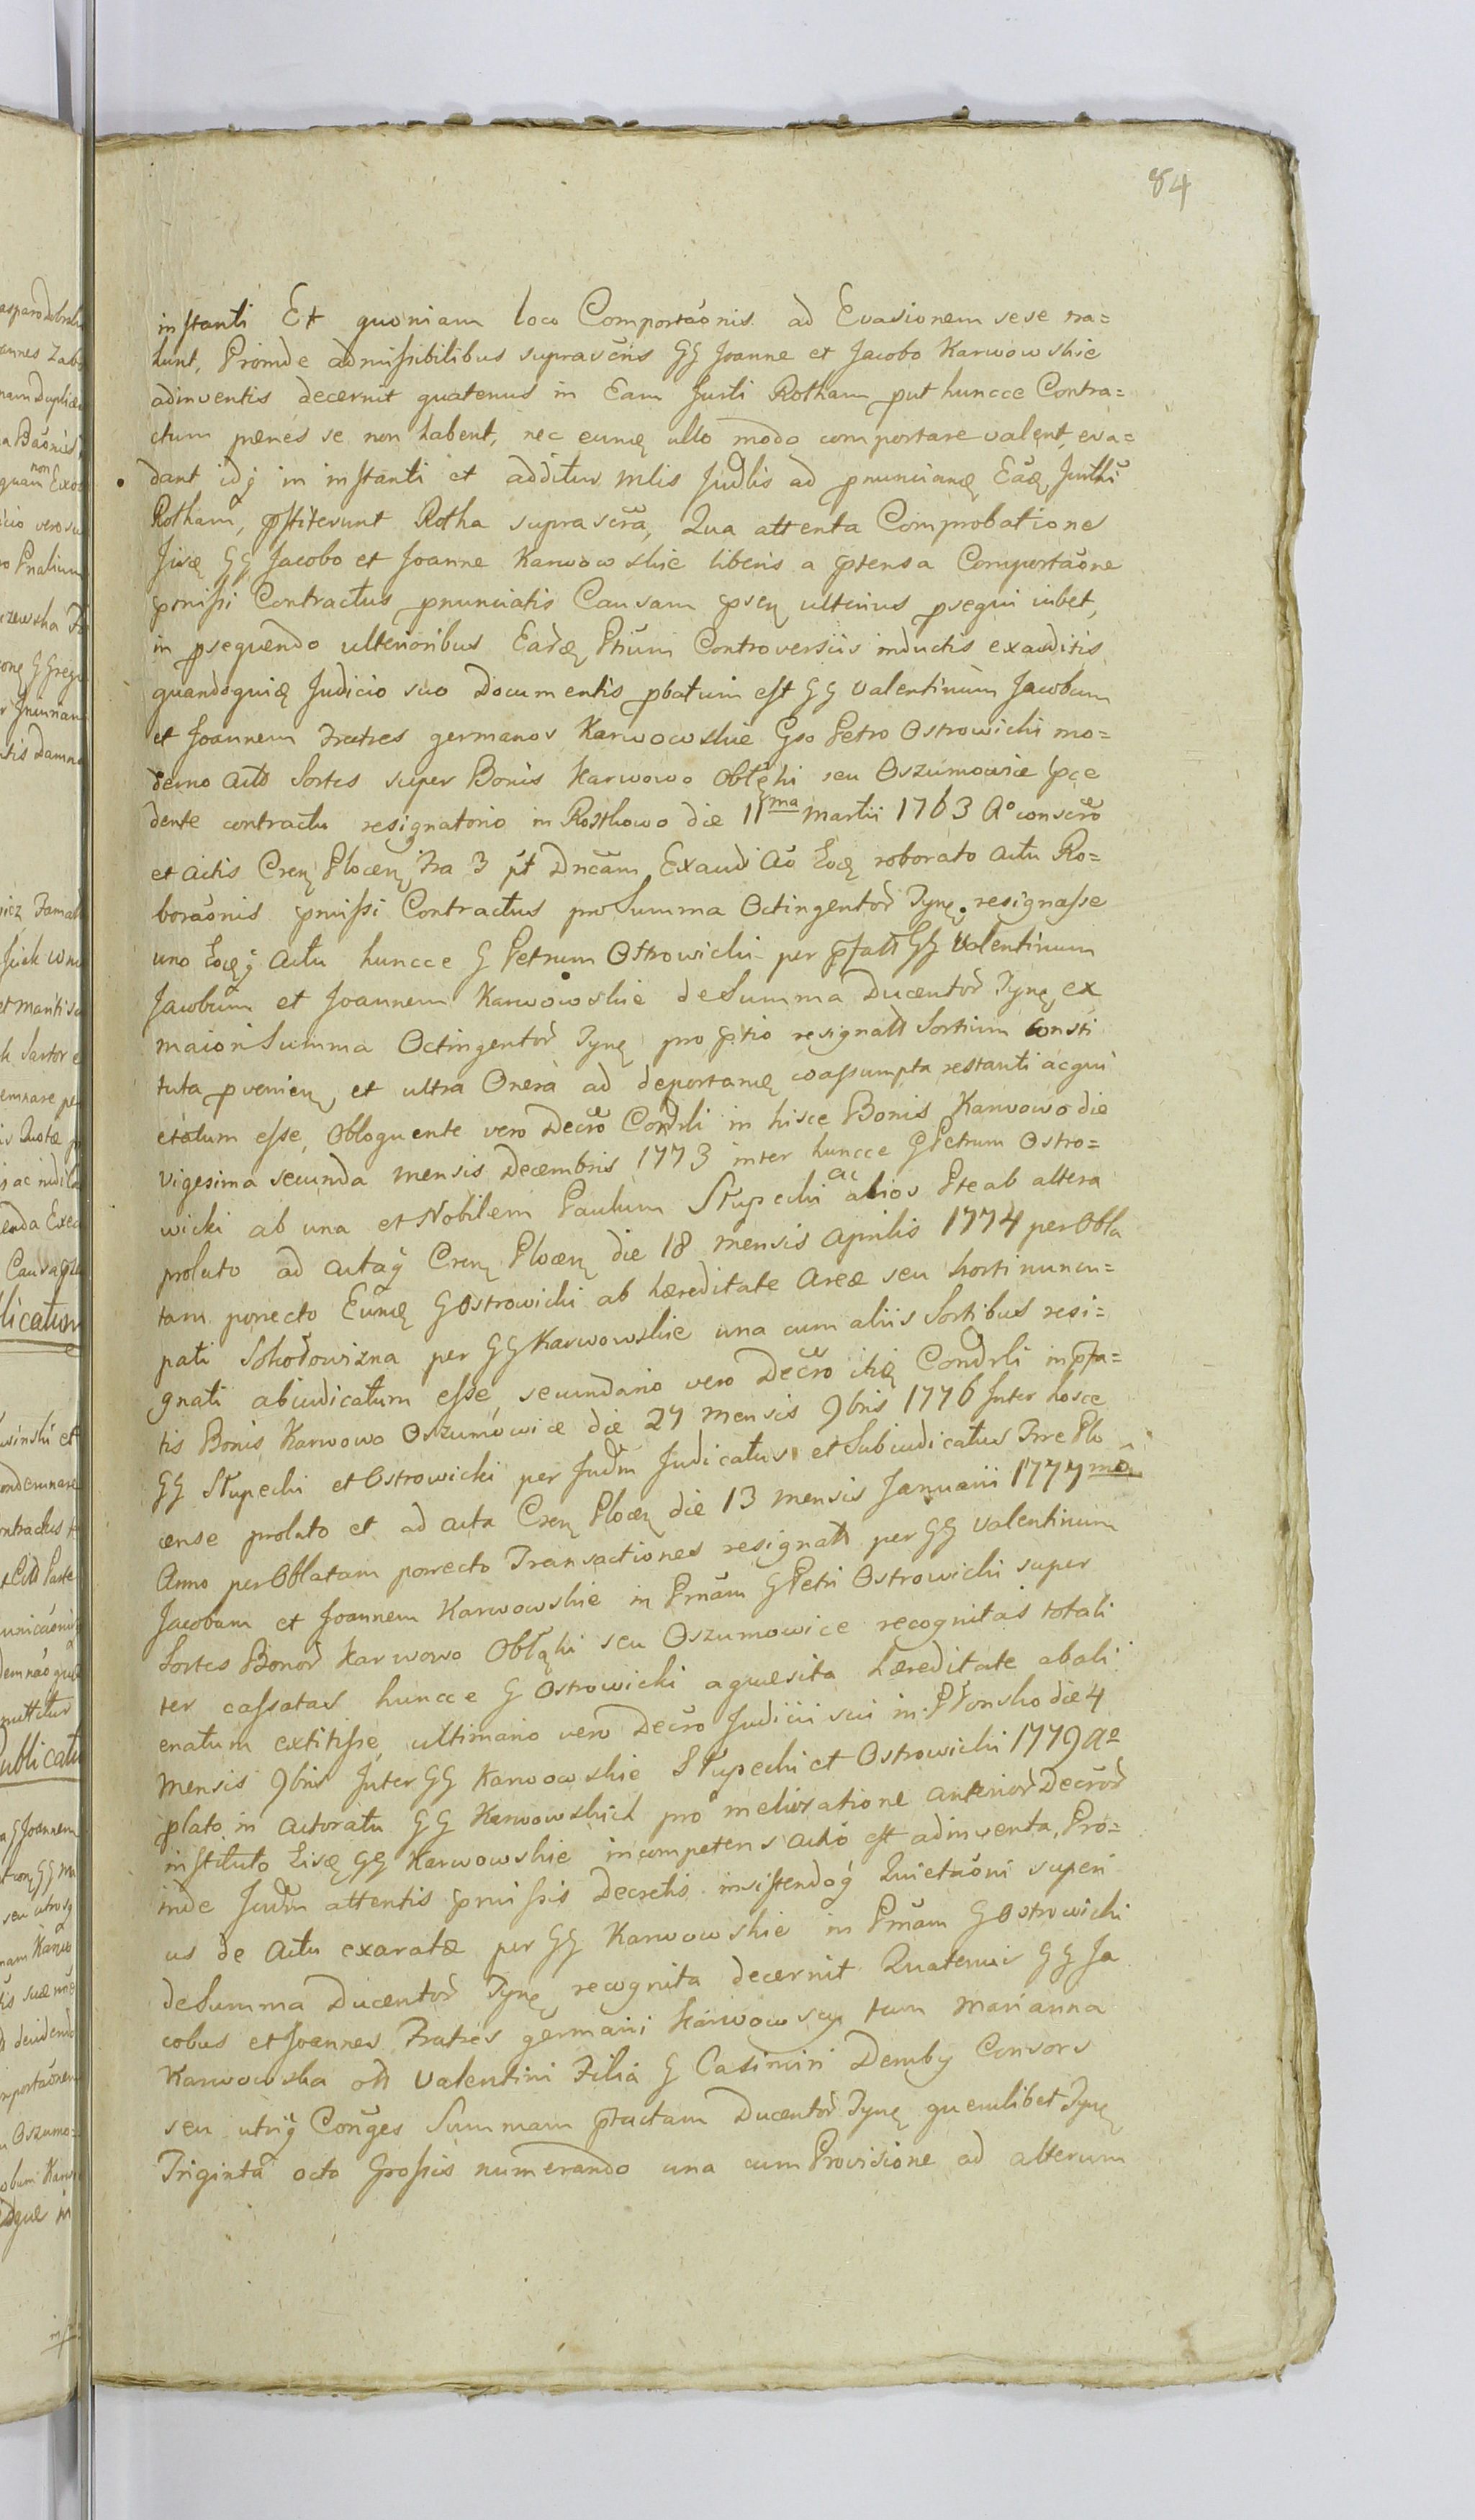 84
instanti Et quoniam loco Comportaõnis ad Evasionem sese tra=
hunt, Proinde admissibilibus suprascris GG Joanne et Jacobo Karwowskie
adinventis decernit quatenus in Eam Jurti Rotham put huncce Contra=
ctum penes se non habent, nec eumę ullo modo comportare valent, eva=
dant idq́ in instanti et additus Mlis Judlis ad pnuncianę Eaę Jurthi
Rotham, pstiterunt Rotha suprascra, Qua attenta Comprobatione
Jisę GG Jacobo et Joanne Karwowskie liberis a ptensa Comportaõne
pmissi Contractus pnunciatis Causam psen ulterius psequi iubet,
in psequendo ulterioribus Earę Ptium Controversiis inductis exauditis
quandoquię Judicio suo Documentis pbatum est GG Valentinum Jacobum
et Joannem Fratres germanos Karwowskie Gso Petro Ostrowicki mo=
derno Acto Sortes super Bonis Karwowo Obłęki seu Oszumowice pce
dente contractu resignatorio in Rostkowo die 11ma Martii 1763 Ao conscro
et Actis Cren Plocen Fra 3 pt Dncam Exaudi Ao Eoę roborato Actu Ro=
boraõnis pmissi Contractus pro Summa Octingentor Tynę resignasse
uno Eoęq́ Actu huncce G Petrum Ostrowicki per pfatt GG Valentinum
Jacobum et Joannem Karwowskie de Summa Ducentor Tynę ex
maiori Summa Octingentor Tynę pro ptio resignatt Sortium consti
tuta pvenien, et ultra Onera ad deportanę coassumpta restanti acqui
etatum esse, Obloquente vero Decro Condrli in hisce Bonis Karwowo die
vigesima secunda mensis Decembris 1773 inter huncce G Petrum Ostro=
wicki ab una et Nobilem Paulum Słupecki ac alios Pte ab altera
prolato ad Actaq́ Cren Plocen die 18 mensis Aprilis 1774 per Obla
tam porrecto Eumę G Ostrowicki ab hæreditate Areæ seu horti nuncu=
pati Sokołowizna per GG Karwowskie una cum aliis Sortibus resi=
gnati abiudicatum esse, secundario vero Decro itię Condrli in pfa=
tis Bonis Karwowo Oszumowice die 27 mensis 9bris 1776 Inter hosce
GG Słupecki et Ostrowicki per Judm Judicatus et Subiudicatus Trre Plo
cense prolato et ad acta Cren Plocen die 13 mensis Januarii 1777mo
Anno per Oblatam porrecto Transactiones resignatt per GG Valentinum
Jacobum et Joannem Karwowskie in Pnam G Petri Ostrowicki super
Sortes Bonor Karwowo Obłąki seu Oszumowice recognitas totali
ter cassatas huncce G Ostrowicki aquesita hæreditate abali
enatum extitisse, ultimario vero Decro Judicii sui in Płonsko die 4
Mensis 9bris Inter GG Karwowskie Słupecki et Ostrowicki 1779 Ao
plato in Actoratu GG Karwowskich pro melioratione anterior Decror
instituto Eisę GG Karwowskie incompetens Actio est adinventa, Pro=
inde Judm attentis pmissis Decretis insistendoq́ Quietaõni superi
us de Actu exaratæ per GG Karwowskie in Pnam G Ostrowicki
de Summa Ducentor Tynę recognita decernit Quatenus GG Ja
cobus et Joannes Fratres germani Karwowscy tum Marianna
Karwowska ott Valentini Filia G Casimiri Demby Consors
seu utriq́ Conges Summam ptactam Ducentor Tynę quemlibet Tynę
Triginta octo Grossis numerando una cum Provisione ad alterum